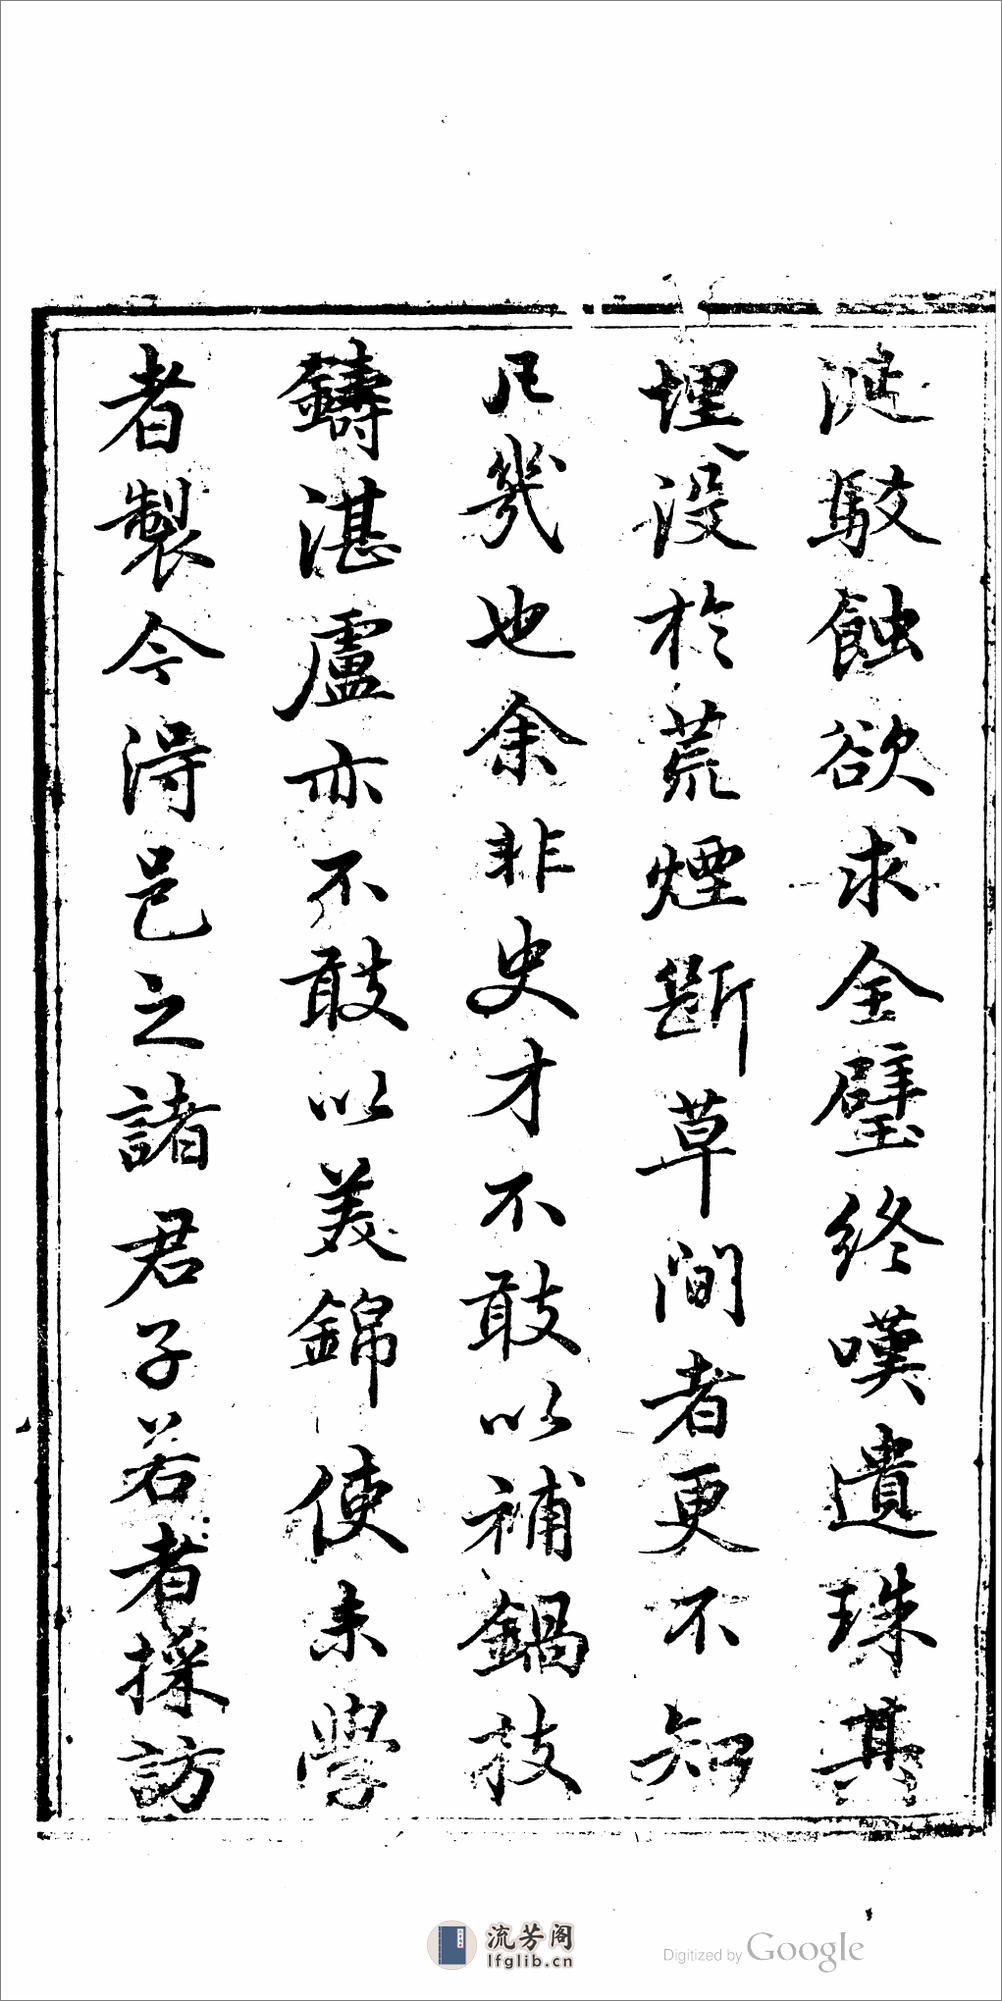 涎駁蝕欲求全璧終嘆遺珠其
埋没於荒煙斷草間者更不知
凡幾也余非史才不敢以補鍋技
鑄湛盧亦不敢以美錦使未學
者製今淂邑之諸君子若者採訪
流芳阁
lfglib.cn
Digitized by Google